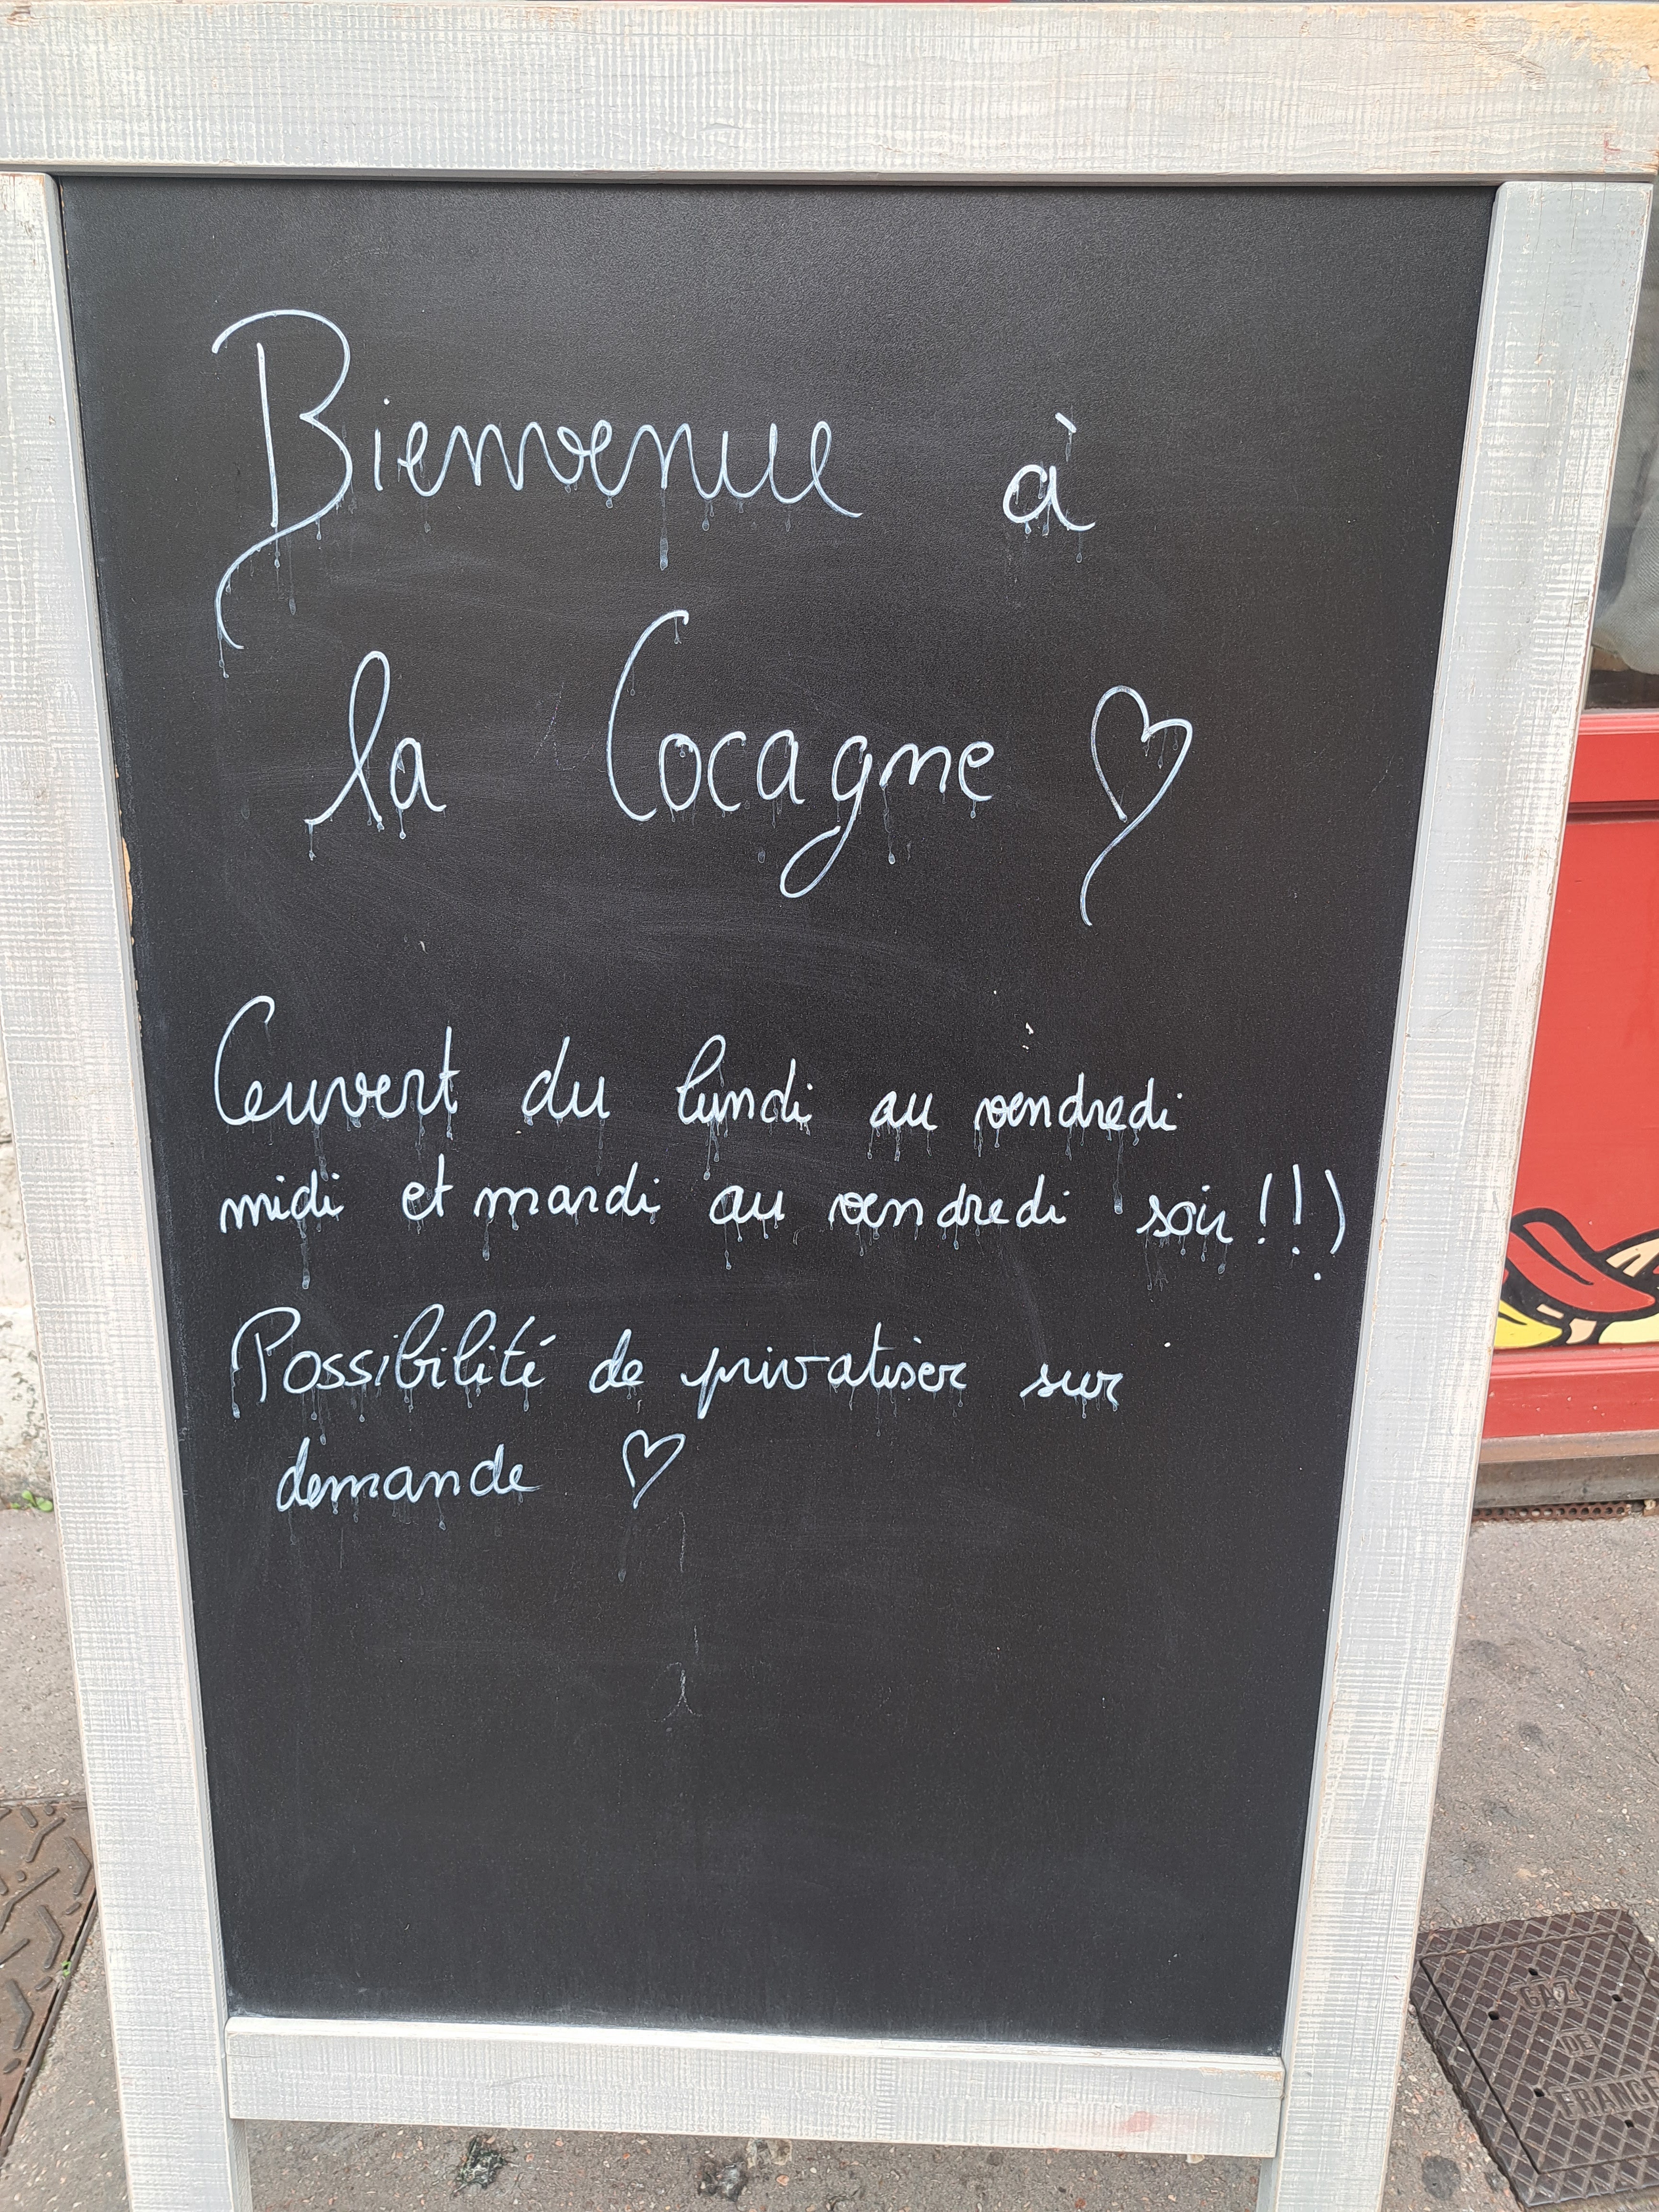 Bienvenue à
la Cocagne ♡
Ouvert du lundi au vendredi
midi et mardi au vendredi soir !!!
Possibilité de privatiser sur
demande ♡
GAZ
DE
FRANCE